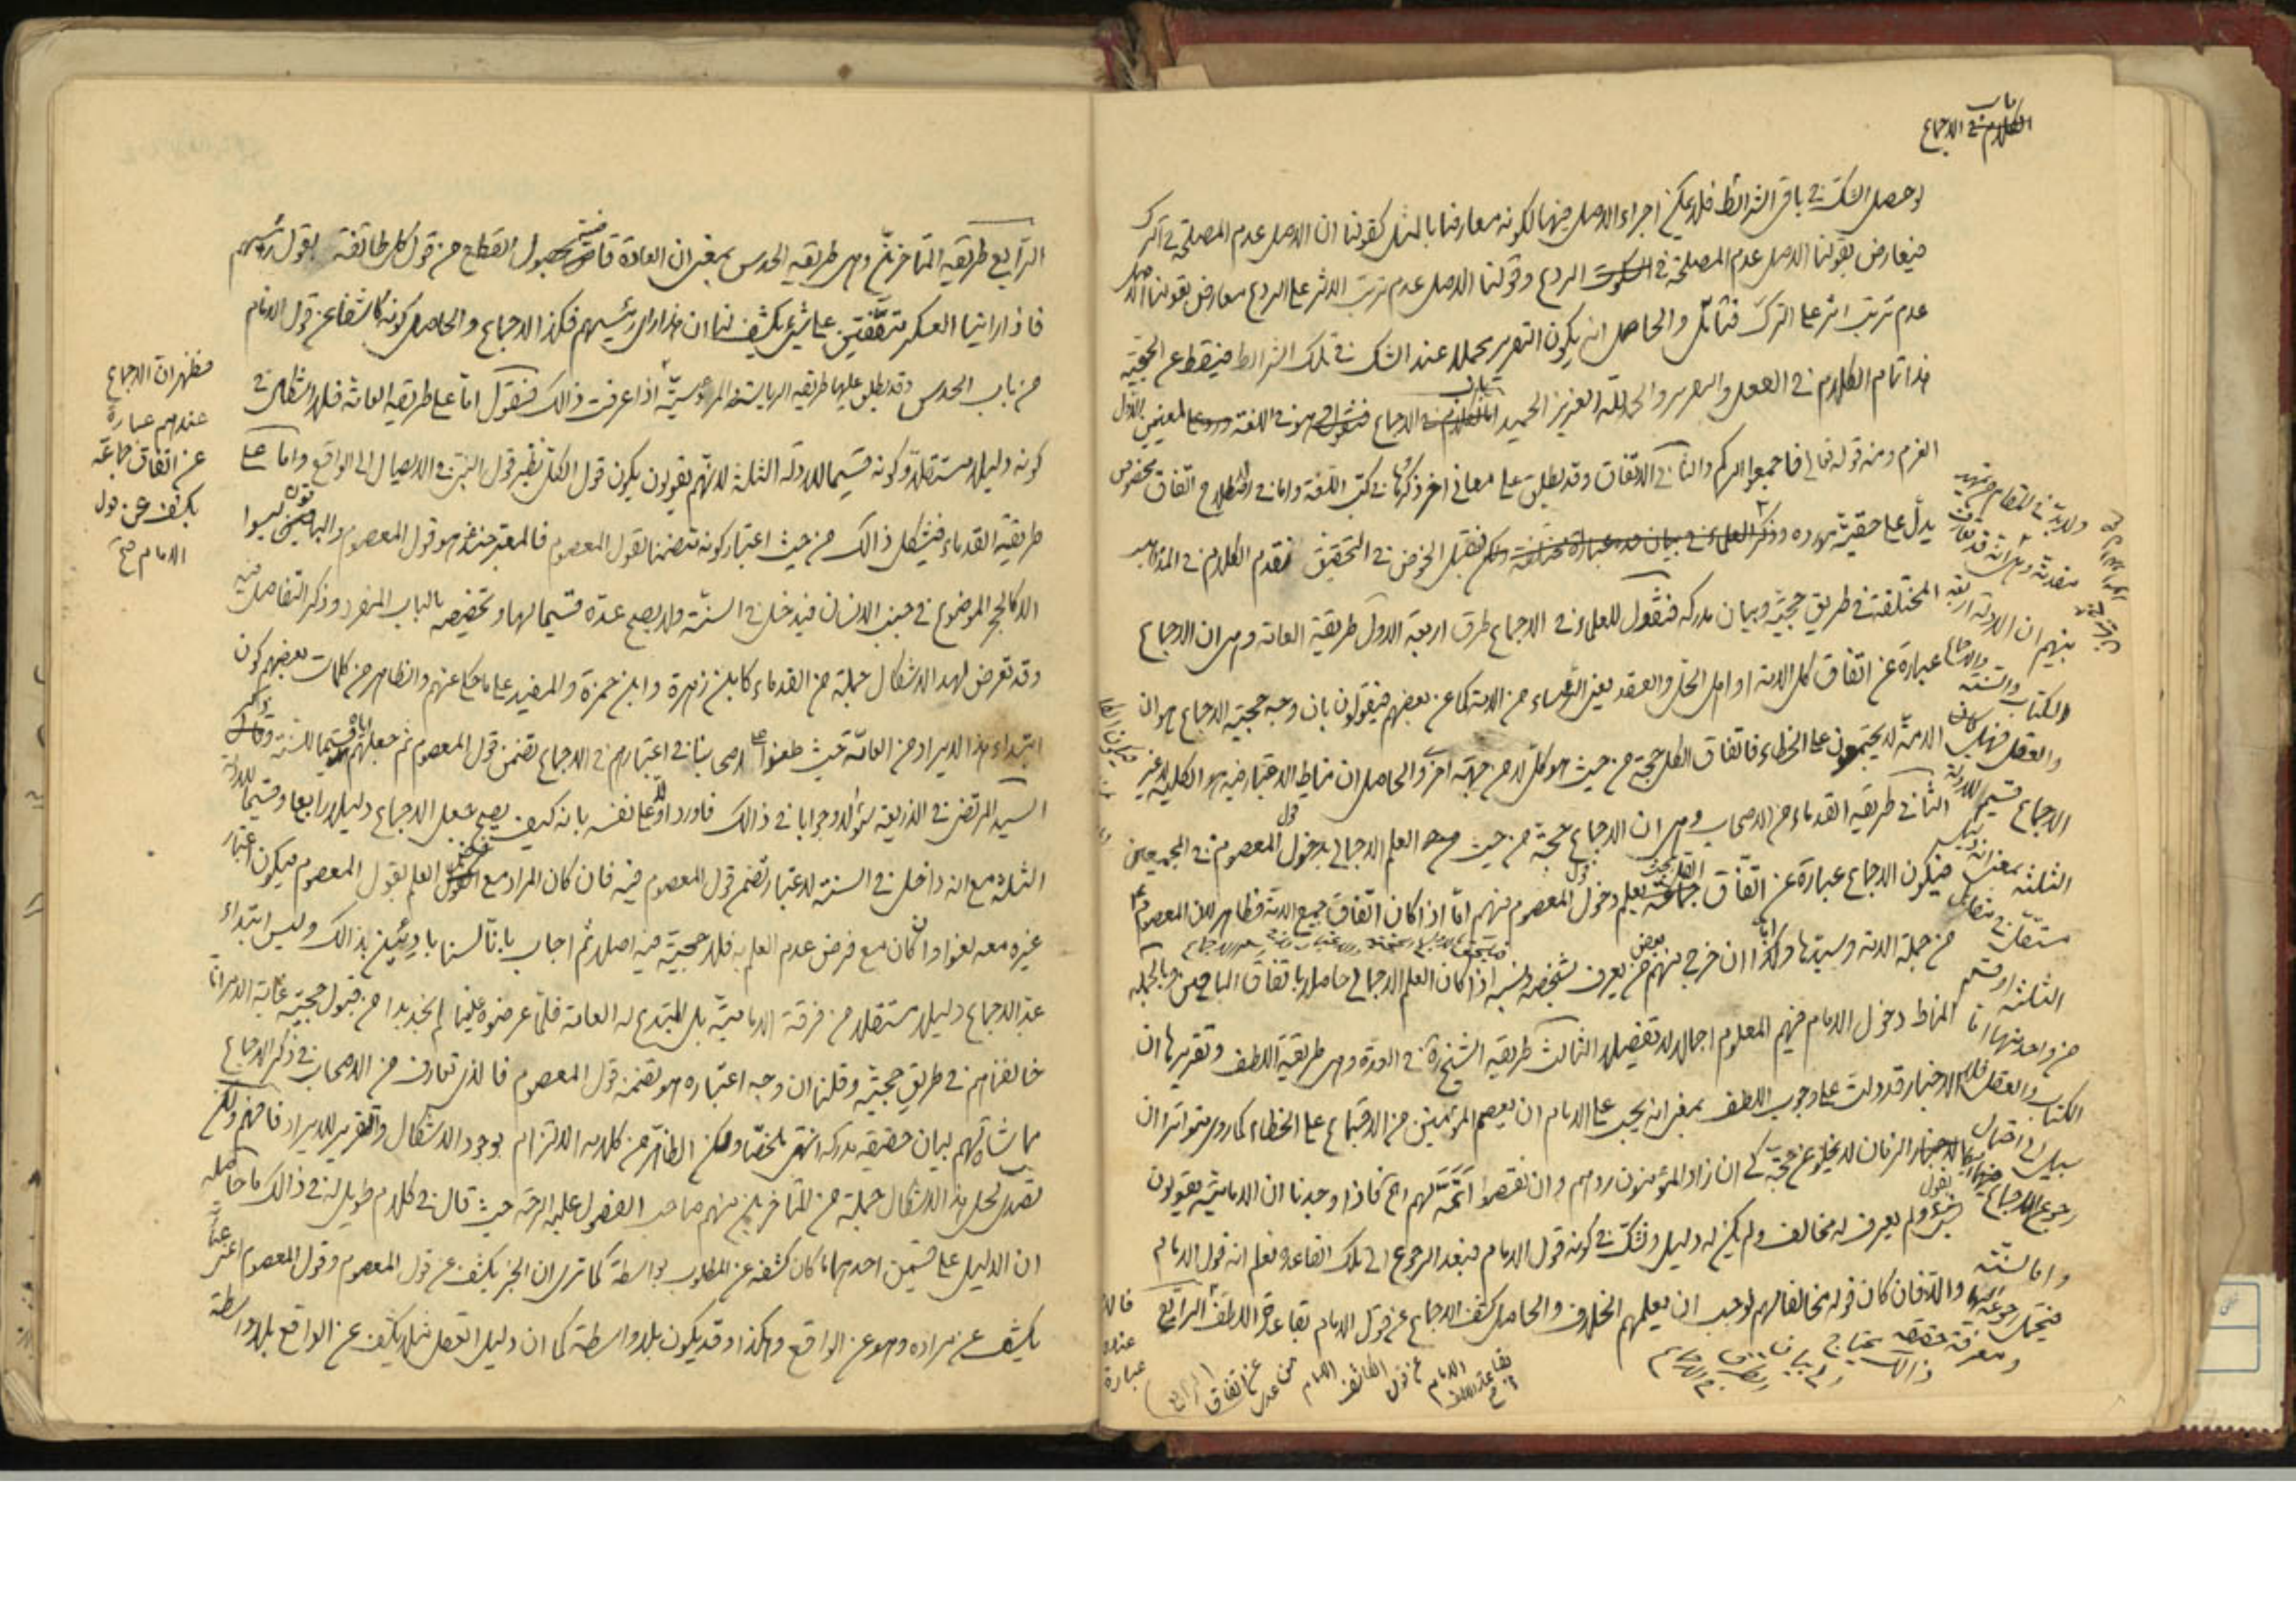 باب
الكلام في الاجماع
لو حصل الشك في باقي الشرائط فلا يمكن اجراء الاصل فيها لكونه معارضا بالمثل كقولنا ان الاصل عدم المصلحة في الترك
فيعارض بقولنا الاصل عدم المصلحة في السكوت الردع وقولنا الاصل عدم ترتب الاثر على الردع معارض بقولنا الاصل
عدم ترتب اثر على الترك فتأمل والحاصل انه يكون التقرير مجملا عند الشك في تلك الشرائط فيسقط عن الحجية
هذا تمام الكلام في الفعل والتقرير والحمد لله العزيز الحميد باب الكلام في الاجماع فنقول هو في اللغة لمعنيين الاول
العزم ومنه قوله تعالى فاجمعوا امركم والثاني الاتفاق وقد يطلق على معاني اخر ذكروها في كتب اللغة واما في الاصطلاح اتفاق مخصوص
يدل على حقية مورده وذكر العلماء في بيان حده عبارة مختلفة ولكن قبل الخوض في التحقيق نقدم الكلام في المذاهب
المختلفة في طريق حجيته وبيان مدركه فنقول للعلماء في الاجماع طرق اربعة الاول طريقة العامة وهي ان الاجماع
عبارة عن اتفاق كل الامة او اهل الحل والعقد يعني الرؤساء من الامة كما عن بعضهم فيقولون بان وجه حجية الاجماع هو ان
الامة لا يجتمعون على الخطاء فاتفاق الكل حجة من حيث هو كل لا من جهة اخرى والحاصل ان مناط الاعتبار فيه هو الكلية لا غير
الثاني طريقة القدماء من الاصحاب وهي ان الاجماع حجة من حيث العلم الاجمالي بدخول قول المعصوم في المجمعين
فيكون الاجماع عبارة عن اتفاق جماعة يعلم دخول قول المعصوم فيهم اما اذا كان اتفاق جميع الامة فظاهر لان المعصوم
من جملة الامة وسيدها وكذا ان خرج منهم بعض من يعرف بشخصه ونسبه اذا كان العلم الاجمالي حاصلا باتفاق الباقين وبالجملة
المناط دخول الامام فيهم المعلوم اجمالا لا تفصيلا الثالث طريقة الشيخ في العدة وهي طريقة اللطف وتقريرها ان
الاخبار قد دلت على وجوب اللطف بمعنى انه يجب على الامام ان يعصم المؤمنين من الاجتماع على الخطاء كما روي متواترا ان
الزمان لا يخلو عن حجة كي ان زاد المؤمنون ردهم وان نقصوا اتمه لهم فاذا وجدنا ان الامامية يقولون
بقول ولم يعرف له مخالف ولم يكن له دليل ونشك في كونه قول الامام فبعد الرجوع الى تلك القاعدة نعلم انه قول الامام
والا فان كان قوله مخالفا لهم لوجب ان يعلمهم الخلاف والحاصل كشف الاجماع عن قول الامام بقاعدة اللطف الرابع
والكتاب والسنة والاجماع
والعقل فهل كان
الاجماع قسيم للادلة
الثلثة بمعنى انه دليل
مستقل في مقابل
الثلثة او قسم
من واحد منها اما
الكتاب والعقل فلا
سبيل الى احتمال
رجوع الاجماع اليهما
واما السنة
فيحتمل رجوعه اليها
ومعرفة حقيقة ذلك يحتاج
الرابع طريقة المتاخرين وهي طريقة الحدس بمعنى ان العادة قاضية بحصول القطع من قول كل طائفة بقول رئيسهم
فاذا راينا العسكر متفقين على شيء يكشف لنا ان هذا راي رئيسهم فكذا الاجماع والحاصل كونه كاشفا عن قول الامام
من باب الحدس وقد يطلق عليها طريقة الرياسة والمرؤوسية اذا عرفت ذلك فنقول اما على طريقة العامة فلا اشكال في
كونه دليلا مستقلا وكونه قسيما للادلة الثلثة لانهم يقولون يكون قول الكل نظير قول النبي في الايصال الى الواقع واما على
طريقة القدماء فيشكل ذلك من حيث اعتبار كونه متضمنا لقول المعصوم فالمعتبر عندهم هو قول المعصوم والباقون ليسوا
الا كالحجر الموضوع في جنب الانسان فيدخل في السنة ولا يصح عده قسيما لها وتخصيصه بالباب المنفرد وذكر التفاصيل فيه
وقد تعرض لهذا الاشكال جملة من القدماء كابن زهرة وابن حمزة والمفيد على ما حكي عنهم والظاهر من كلمات بعضهم كون
ابتداء هذا الايراد من العامة حيث طعنوا على اصحابنا في اعتبارهم في الاجماع تضمن قول المعصوم ثم جعلهم اياه قسيما للسنة وذكر
السيد المرتضى في الذريعة سؤالا وجوابا في ذلك فاورد اولا على نفسه بانه كيف يصح جعل الاجماع دليلا رابعا وقسيما للادلة
الثلثة مع انه داخل في السنة لاعتبار تضمن قول المعصوم فيه فان كان المراد مع العلم بقول المعصوم فيكون اعتبار
غيره معه لغوا وان كان مع فرض عدم العلم به فلا حجية فيه اصلا ثم اجاب بانا لسنا بادئين بذلك وليس ابتداء
عد الاجماع دليلا مستقلا من فرقة الامامية بل المبتدع له العامة فلما عرضوه علينا لم نجد بدا من قبول حجيته غاية الامر انا
خالفناهم في طريق حجيته وقلنا ان وجه اعتباره هو تضمنه قول المعصوم فالذي تعارف من الاصحاب في ذكر الاجماع
مماشاة لهم لبيان حقيقة مدركه انتهى ملخصا ولكن الظاهر من كلامه الالتزام بوجود الاشكال والتقرير للايراد فافهم ولكن
تصدى لحل هذا الاشكال جملة من المتاخرين منهم صاحب الفصول عليه الرحمة حيث قال في كلام طويل له في ذلك ما حاصله
ان الدليل على قسمين احدهما ما كان كشفه عن المطلوب بواسطة كما ترى ان الخبر يكشف عن قول المعصوم وقول المعصوم
يكشف عن مراده وهو عن الواقع وهكذا وقد يكون بلا واسطة كما ان دليل العقل مثلا يكشف عن الواقع بلا واسطة
فظهر ان الاجماع
عندهم عبارة
عن اتفاق جماعة
يكشف عن قول
الامام صح